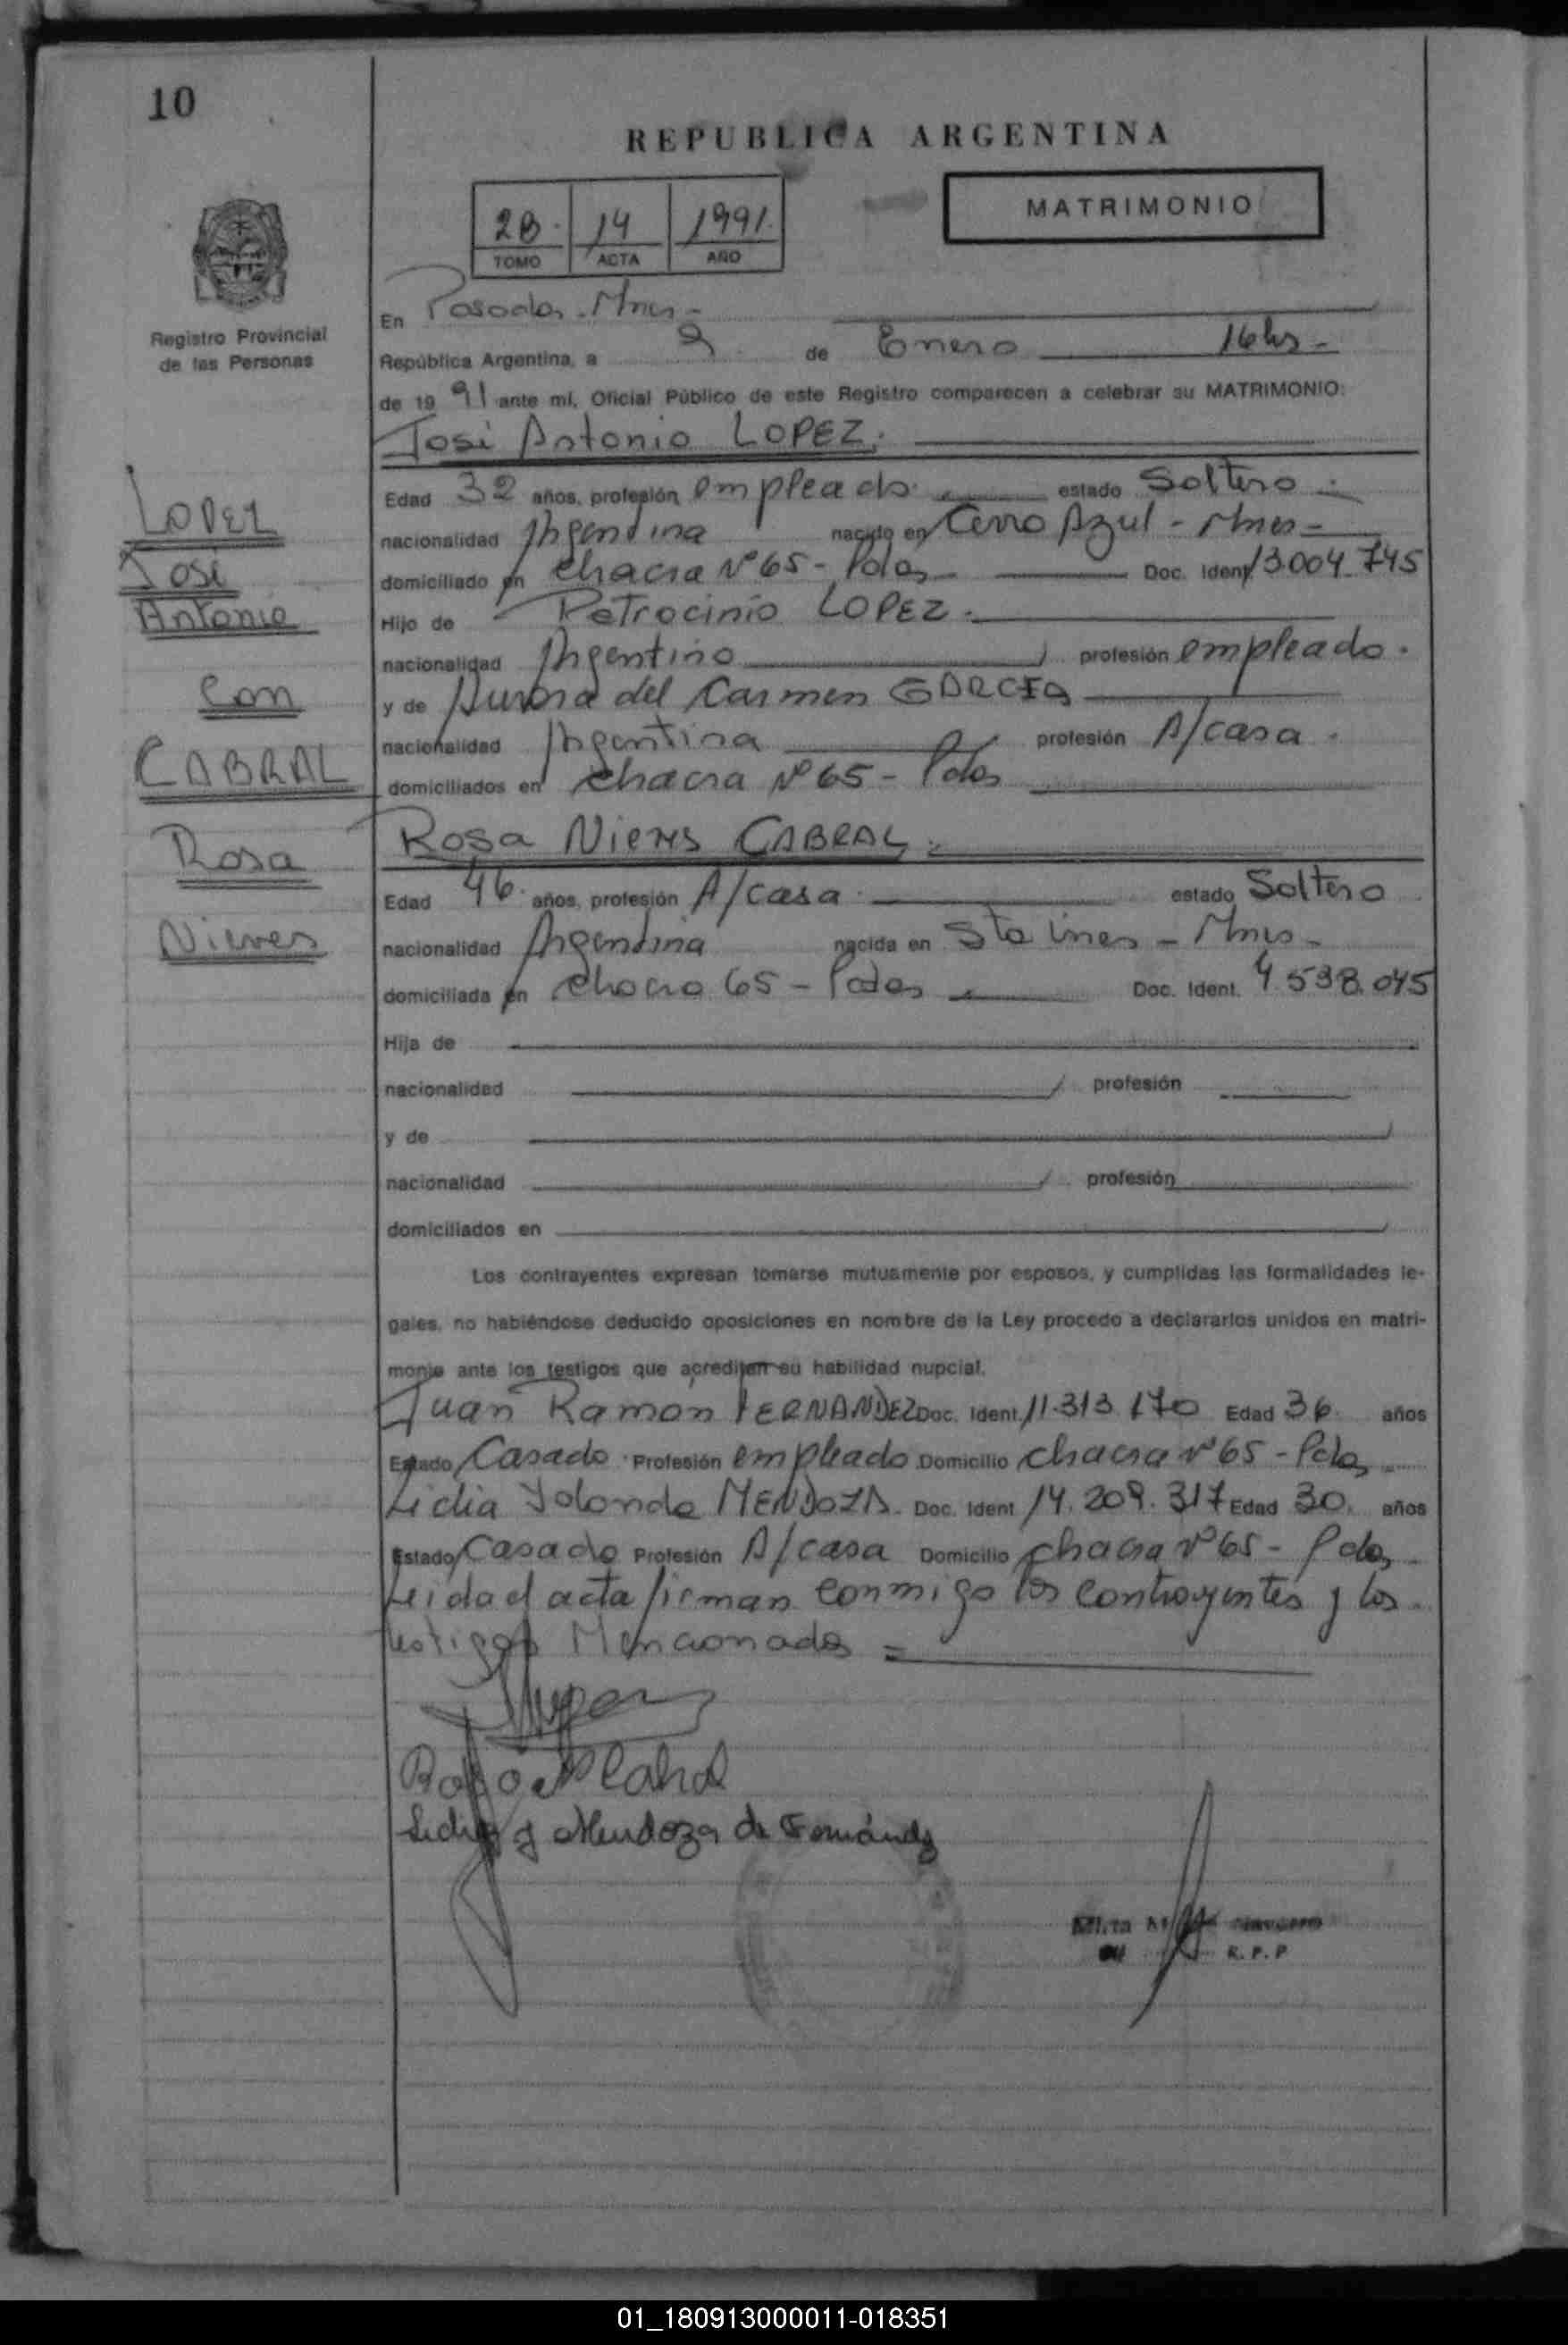 10
REPUBLICA ARGENTINA
2B 14 1991
TOMO ACTA AÑO
MATRIMONIO
Registro Provincial
de las Personas
En Posadas - Mnes -
República Argentina, a de Enero 16 hs -
de 19 91 ante mí, Oficial Público de este Registro comparecen a celebrar su MATRIMONIO:
José Antonio LOPEZ.
LOPEZ
José
Antonio
Con
CABRAL
Rosa
Nieves
Edad 32 años, profesión empleado estado Soltero
nacionalidad Argentina nacido en Cerro Azul - Mnes -
domiciliado en Chacra Nº 65 - Pdas - Doc. Ident. 13.004.745
Hijo de Patrocinio LOPEZ.
nacionalidad Argentino profesión empleado.
y de Aurora del Carmen GARCIA
nacionalidad Argentina profesión A/casa.
domiciliados en Chacra Nº 65 - Pdas
Rosa Nieves CABRAL.
Edad 46 años, profesión A/casa estado Soltero
nacionalidad Argentina nacida en Sta Ines - Mnes -
domiciliada en Chacra 65 - Pdas Doc. Ident. 4.538.045
Hija de
nacionalidad profesión
y de
nacionalidad profesión
domiciliados en
Los contrayentes expresan tomarse mutuamente por esposos, y cumplidas las formalidades le-
gales, no habiéndose deducido oposiciones en nombre de la Ley procedo a declararlos unidos en matri-
monio ante los testigos que acreditan su habilidad nupcial.
Juan Ramon FERNANDEZ Doc. Ident. 11.313.170 Edad 36 años
Estado Casado Profesión empleado Domicilio Chacra Nº 65 - Pdas
Lidia Yolanda MENDOZA Doc. Ident. 14.209.317 Edad 30. años
Estado Casado Profesión A/casa Domicilio Chacra Nº 65 - Pdas
Leida el acta firman conmigo los contrayentes y los
testigos Mencionados =
Rosa N Cabral
Lidia Y Mendoza de Fernández
R. P. P
01_180913000011-018351